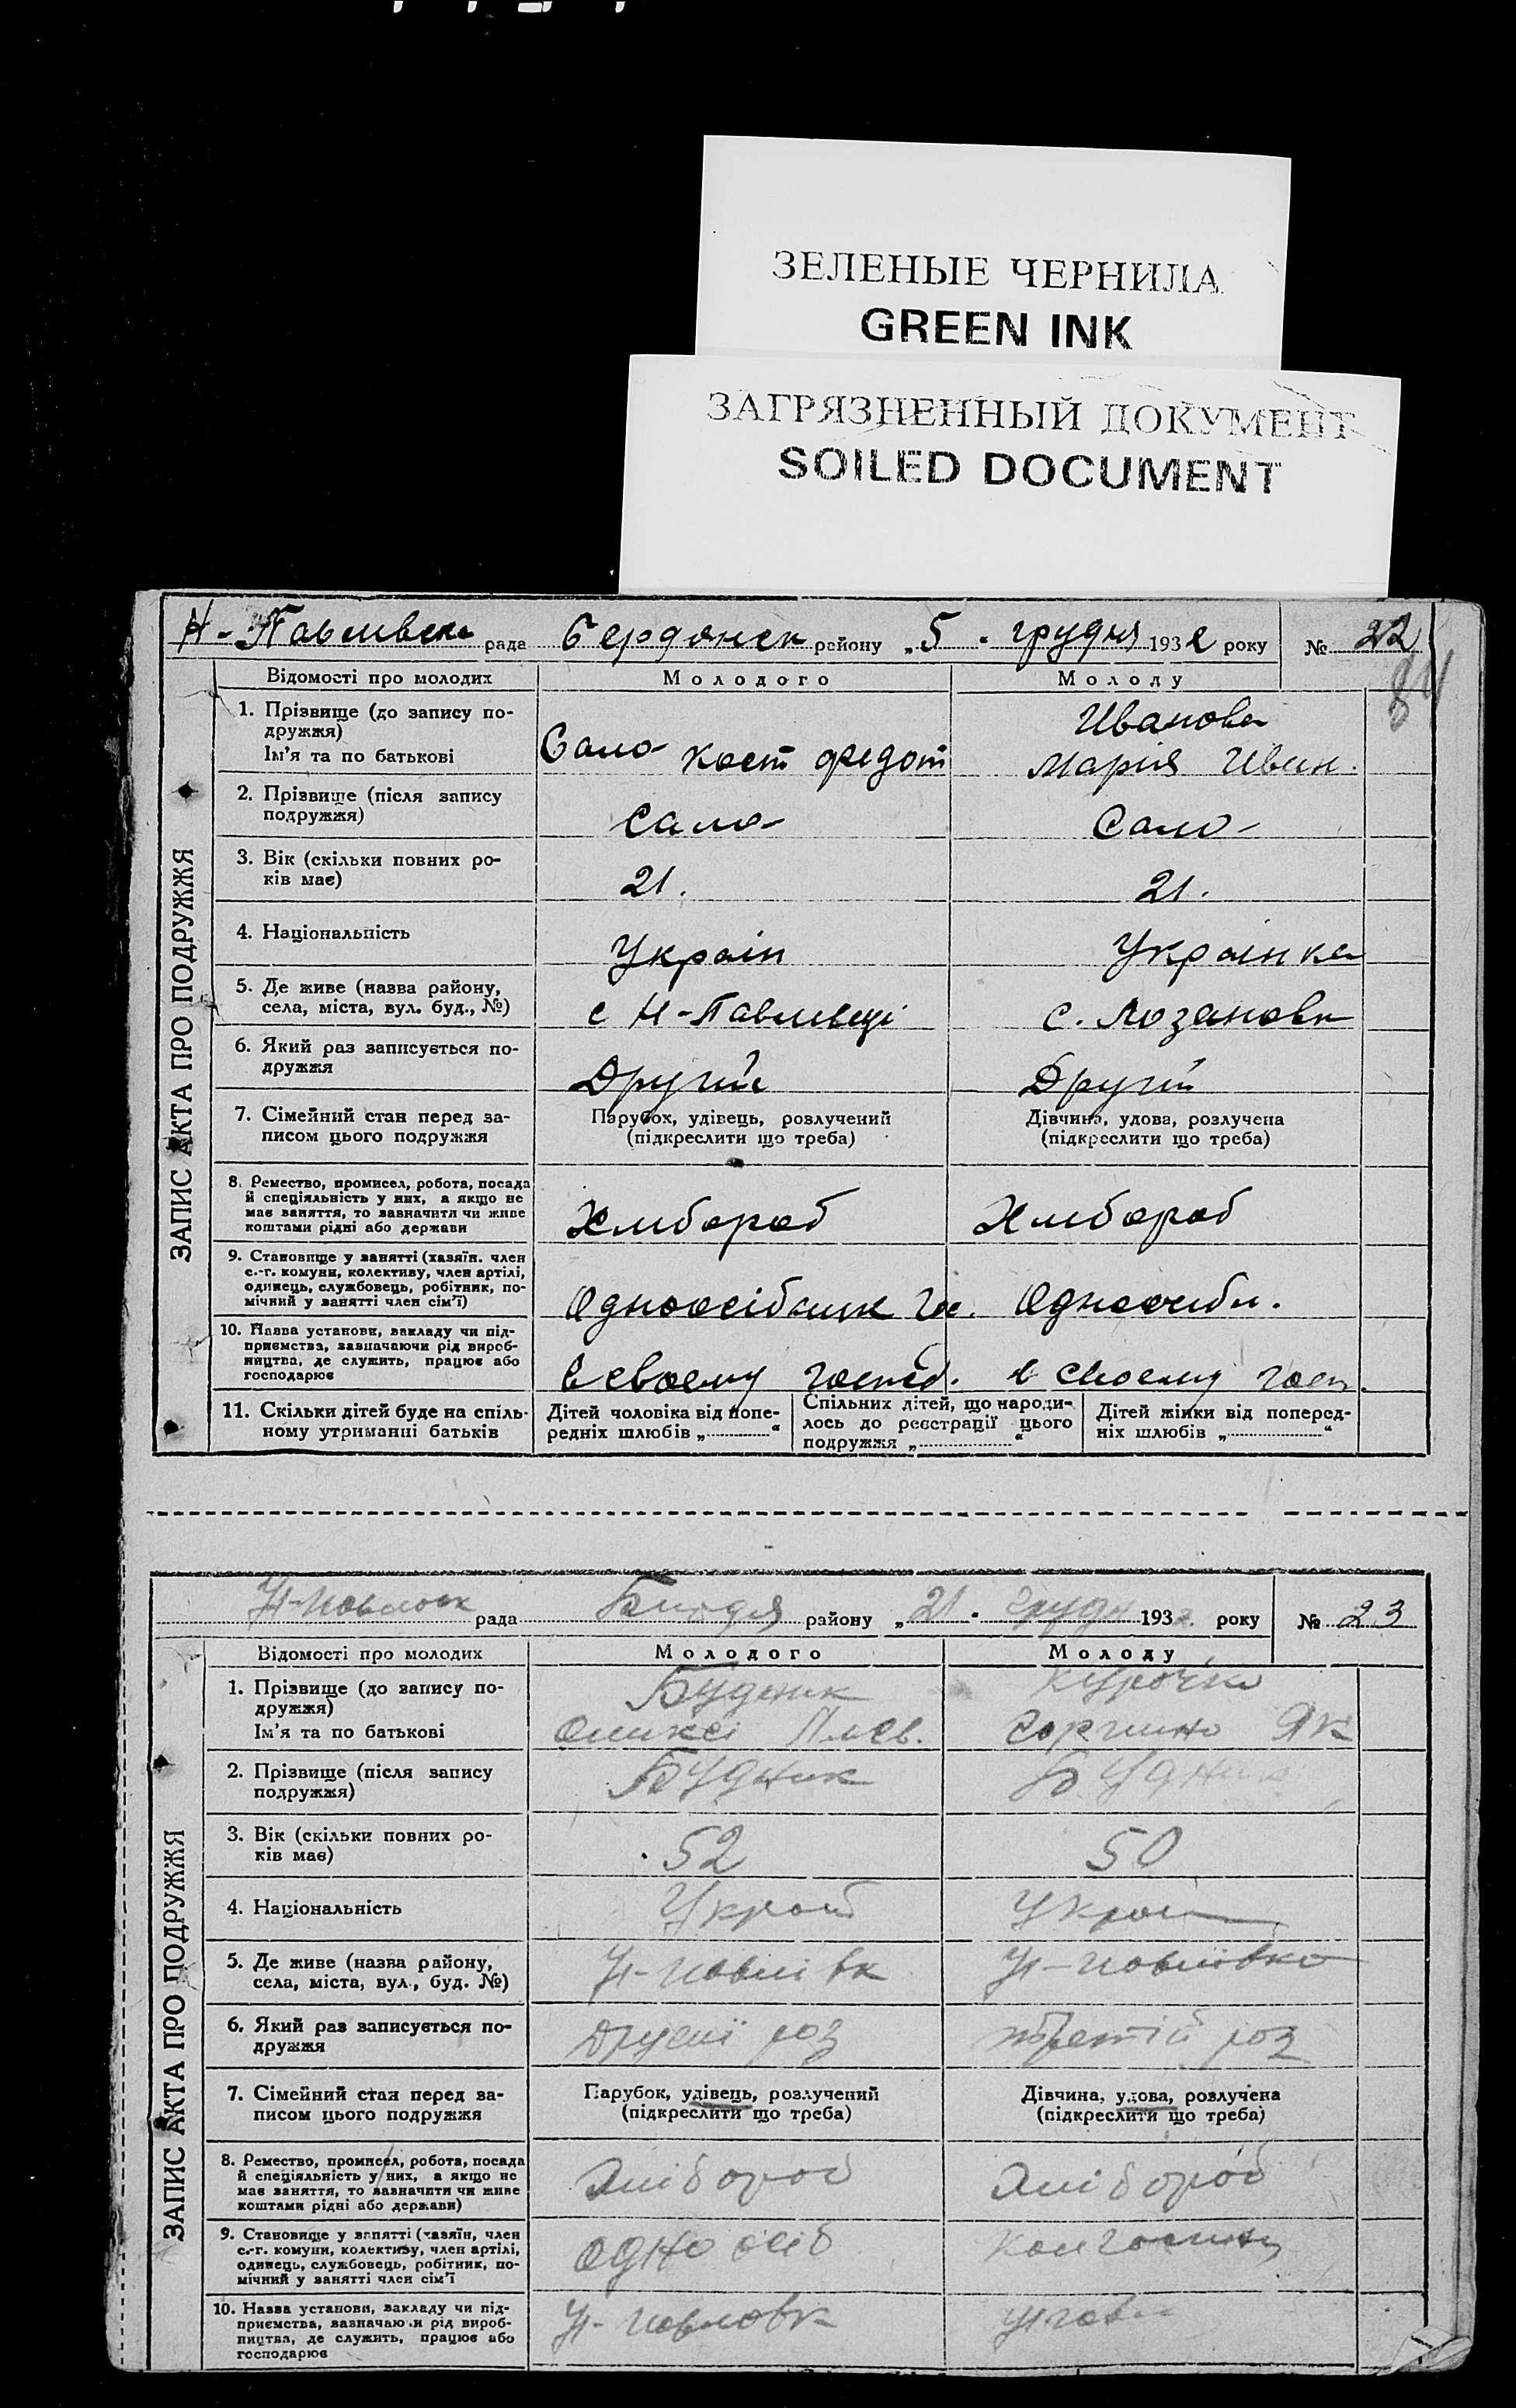 ЗЕЛЕНЫЕ ЧЕРНИЛА
GREEN INK
ЗАГРЯЗНЕННЫЙ ДОКУМЕНТ
SOILED DOCUMENT
рада району „5. грудня 1932 року № 22
84
ЗАПИС АКТА ПРО ПОДРУЖЖЯ
Відомості про молодих Молодого Молоду
1. Прізвище (до запису по-
дружжя)
Ім'я та по батькові
Иванова
Сало Кост Федот Марія Иван.
2. Прізвище (після запису
подружжя)
Сало Сало
3. Вік (скільки повних ро-
ків має)
21. 21.
4. Національність
Украін Украінка
5. Де живе (назва району,
села, міста, вул. буд., №)
с Н-Павлівці с. Лозановк
6. Який раз записується по-
дружжя
Другий Другий
7. Сімейний стан перед за-
писом цього подружжя
Парубок, удівець, розлучений
(підкреслити що треба)
Дівчина, удова, розлучена
(підкреслити що треба)
8. Ремество, промисел, робота, посада
й спеціяльність у них, а якщо не
має заняття, то зазначити чи живе
коштами рідні або держави
Хлибороб Хлибороб
9. Становище у занятті (хазяїн. член
с.-г. комуни, колективу, член артілі,
одинець, службовець, робітник, по-
мічний у занятті член сім'ї)
Одноосібник Гос. Одноосіби.
10. Назва установи, закладу чи під-
приємства, зазначаючи рід вироб-
ництва, де служить, працює або
господарює
в своему господ. в своему госп.
11. Скільки дітей буде на спіль-
ному утриманні батьків
Дітей чоловіка від попе-
редніх шлюбів „ “
Спільних дітей, що народи-
лось до реєстрації цього
подружжя „ “
Дітей жінки від поперед-
ніх шлюбів „ “
рада району „21. грудн 1932. року № 23
ЗАПИС АКТА ПРО ПОДРУЖЖЯ
Відомості про молодих Молодого Молоду
1. Прізвище (до запису по-
дружжя)
Ім'я та по батькові
Будник Курочка
Оликсі Як
2. Прізвище (після запису
подружжя)
Будник Будник
3. Вік (скільки повних ро-
ків має)
52 50
4. Національність
Украі Украі
5. Де живе (назва району,
села, міста, вул., буд. №)
Н-Павлівк Н-Павлівка
6. Який раз записується по-
дружжя
Другиі раз третій раз
7. Сімейний стан перед за-
писом цього подружжя
Парубок, удівець, розлучений
(підкреслити що треба)
Дівчина, удова, розлучена
(підкреслити що треба)
8. Ремество, промисел, робота, посада
й спеціяльність у них, а якщо не
має заняття, то зазначити чи живе
коштами рідні або держави)
Хлібороб Хлібороб
9. Становище у занятті (хазяїн, член
с.-г. комуни, колективу, член артілі,
одинець, службовець, робітник, по-
мічний у занятті член сім'ї
Одноосіб
10. Назва установи, закладу чи під-
приємства, зазначаючи рід вироб-
ництва, де служить, працює або
господарює
Н-Павловк